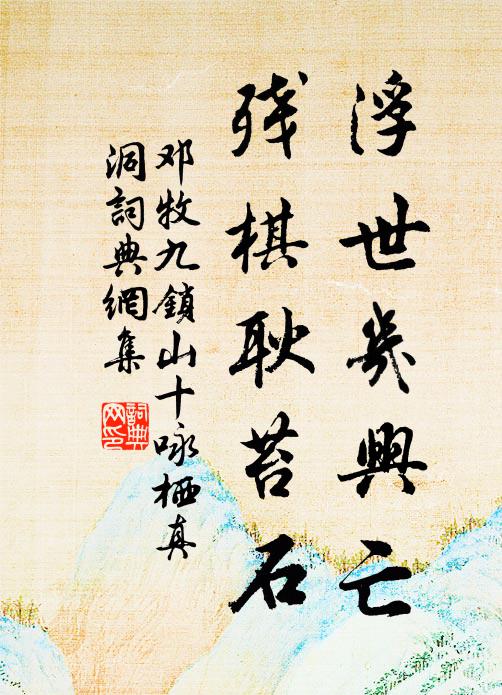 浮世几興亡
残棋耿苔石
邓牧九鎖山十咏栖真
洞詞典網集
詞典网印